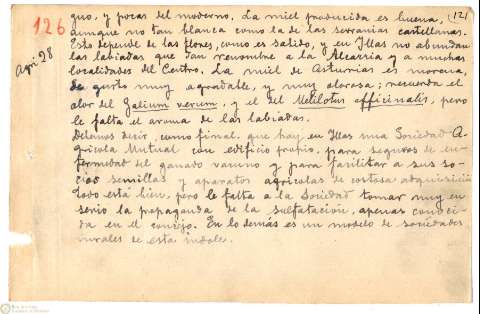 126
Agri. 28
(2)
guo, y pocas del moderno. La miel producida es buena,
aunque no tan blanca como la de las serranias castellanas.
Esto depende de las flores, como es sabido, y en Illas no abundan
las labiadas que dan renombre a la Alcarria y a muchas
localidades del Centro. La miel de Asturias es morena,
de gusto muy agradable, y muy olorosa; recuerda el
olor del Galium verum, y el del Melilotus officinalis, pero
le falta el aroma de las labiadas.
Debemos decir, como final, que hay en Illas una Sociedad A-
gricola Mutual con edificio propio, para seguros de en-
fermedad del ganado vacuno y para facilitar a sus so-
cios semillas y aparatos agricolas de costosa adquisición
Todo está bien, pero le falta a la Sociedad tomar muy en
serio la propaganda de la sulfatación, apenas conoci-
da en el concejo. En lo demás es un modelo de sociedades
rurales de esta indole.